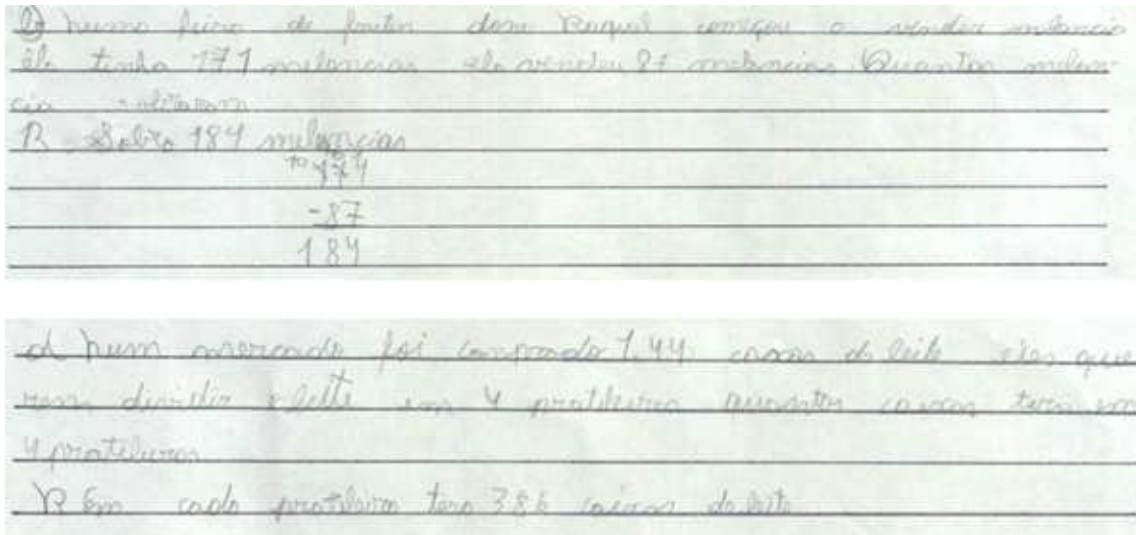 b) numa feira de frutas dona Raquel começou a vender melancia
ela tinha 171 melancias ela vendeu 87 melancias Quantas melan-
cia
R Sobro 184 melancias
10
-87
184
d num mercado foi comprado 1.44 caxas de leite eles que
dividir o leite em 4 pratileira quantas caixas tera em
4 pratileiras
R Em cada pratileira tera 386 caixas de leite